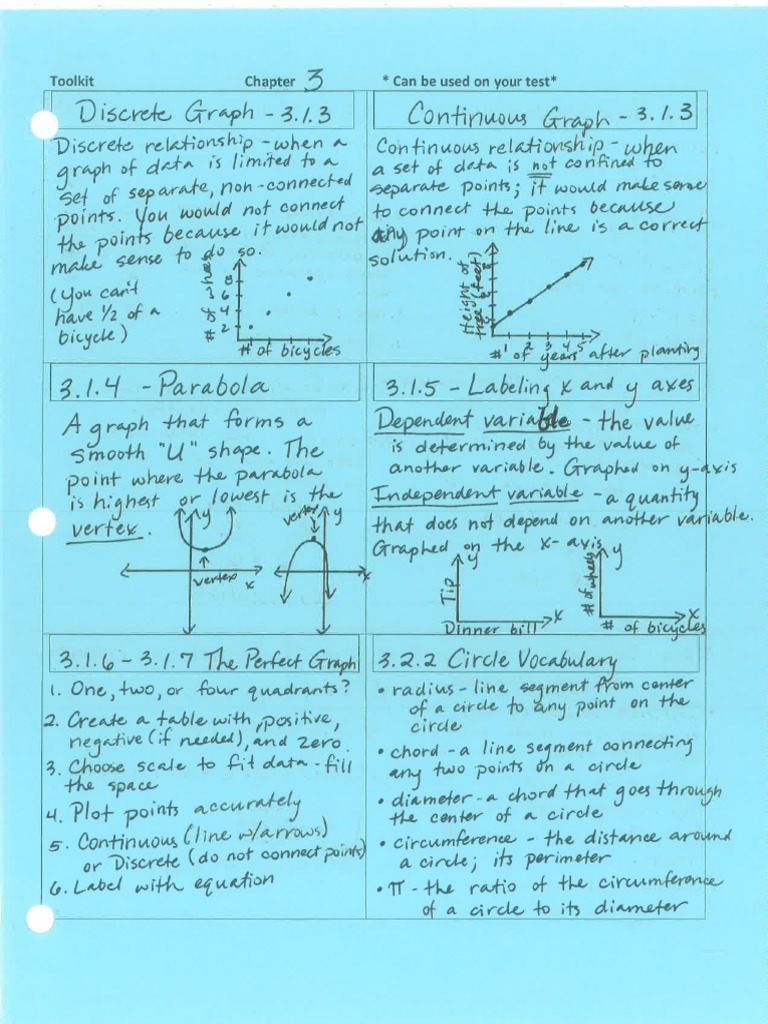 Toolkit Chapter 3 * Can be used on your test*
Discrete Graph - 3.1.3
Discrete relationship - when a
graph of data is limited to a
set of separate, non-connected
points. You would not connect
the points because it would not
make sense to do so.
(you can't
have 1/2 of a
bicycle)
# of wheels
8
6
4
2
# of bicycles
Continuous Graph - 3.1.3
Continuous relationship - when
a set of data is not confined to
separate points; it would make sense
to connect the points because
any point on the line is a correct
solution.
Height of
tree (feet)
1 2 3 4 5
# of years after planting
3.1.4 - Parabola
A graph that forms a
smooth "U" shape. The
point where the parabola
is highest or lowest is the
vertex.
y
vertex
x
vertex
y
x
3.1.5 - Labeling x and y axes
Dependent variable - the value
is determined by the value of
another variable. Graphed on y-axis
Independent variable - a quantity
that does not depend on another variable.
Graphed on the x-axis
y
Tip
x
Dinner bill
y
# of wheels
x
# of bicycles
3.1.6 - 3.1.7 The Perfect Graph
1. One, two, or four quadrants?
2. Create a table with positive,
negative (if needed), and zero.
3. Choose scale to fit data - fill
the space
4. Plot points accurately
5. Continuous (line w/arrows)
or Discrete (do not connect points)
6. Label with equation
3.2.2 Circle Vocabulary
• radius - line segment from center
of a circle to any point on the
circle
• chord - a line segment connecting
any two points on a circle
• diameter - a chord that goes through
the center of a circle
• circumference - the distance around
a circle; its perimeter
• π - the ratio of the circumference
of a circle to its diameter